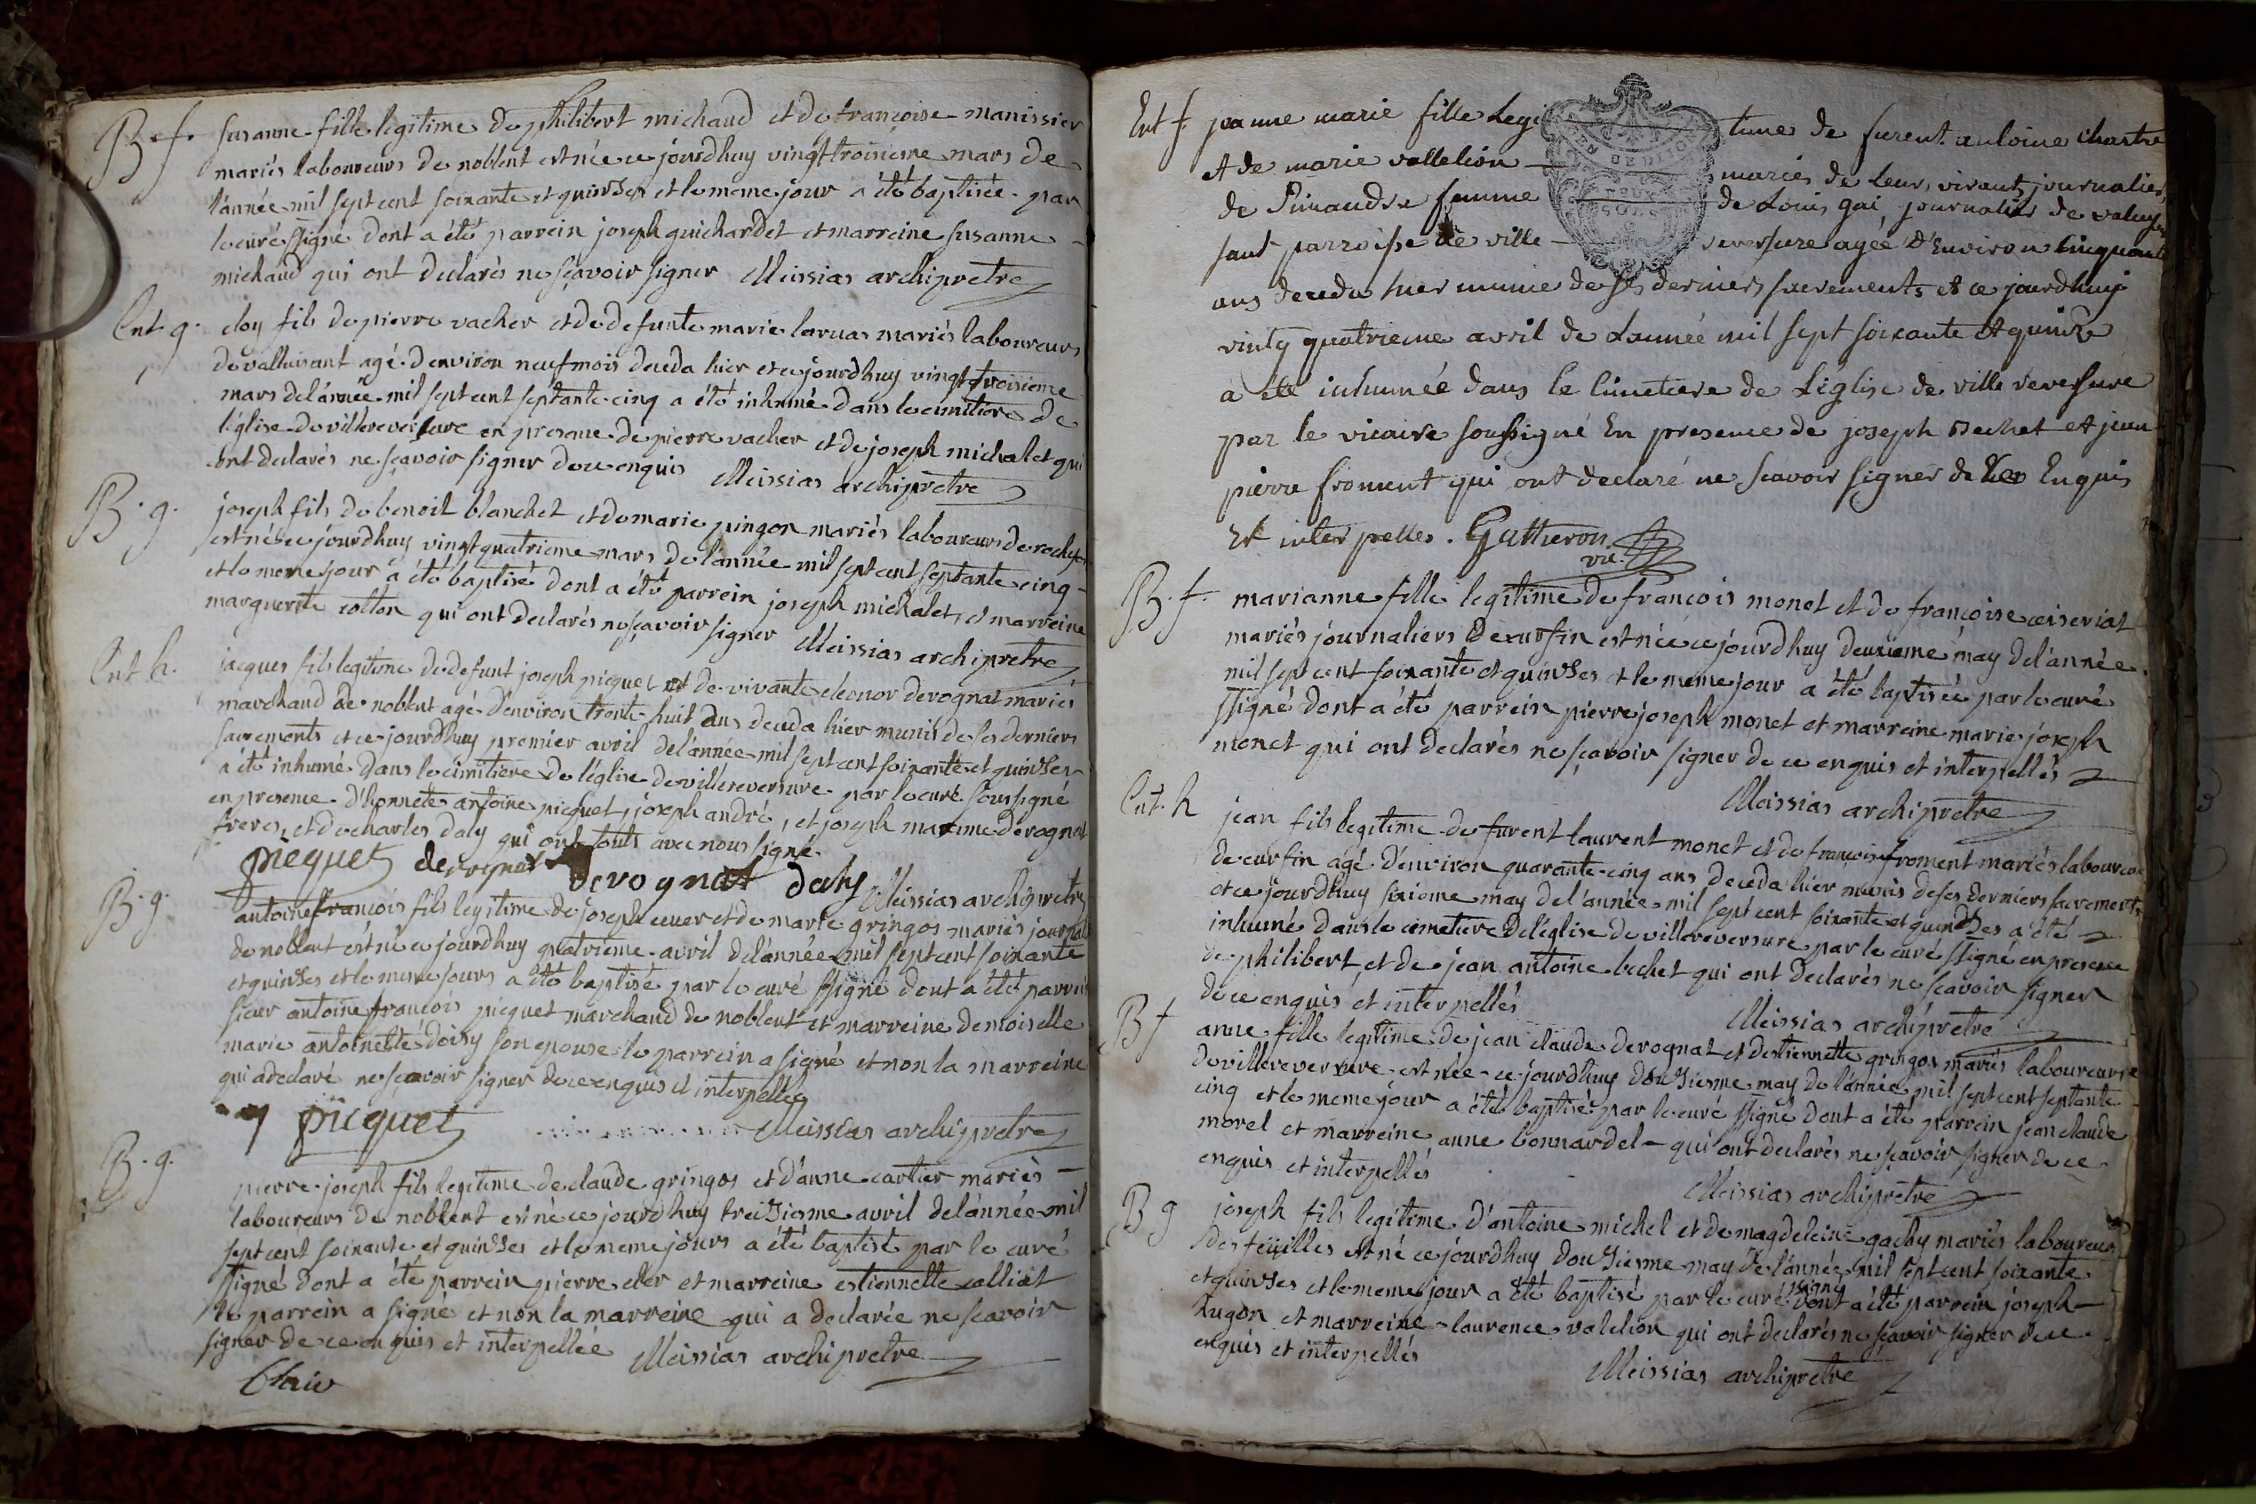 B. f. susanne fille legitime de philibert michaud et de francoise manissier
mariés laboureurs de noblent est née ce jourdhuy vingt troisieme mars de
l'année mil sept cent soixante et quinses et le meme jour a été baptisée par
le curé ssigné dont a été parrein joseph guichardet et marreine susanne
michaud qui ont declarés ne sçavoir signer Meissias archipretre
Ent. g. eloy fils de pierre vacher et de defunte marie laruas mariés laboureurs
de valluisant agé d'environ neuf mois deceda hier et ce jourdhuy vingt troisieme
mars de l'année mil sept cent septante cinq a été inhumé dans le cimitiere de
l'église de villereversure en presence de pierre vacher et de joseph michalet qui
ont declarés ne sçavoir signer de ce enquis Meissias archipretre
B. g. joseph fils de benoit blanchet et de marie pingon mariés laboureurs de
est né ce jourdhuy vingt quatrieme mars de l'année mil sept cent septante cinq
et le meme jour a été baptisé dont a été parrein joseph michalet, et marreine
marguerite collon qui ont declarés ne sçavoir signer Meissias archipretre
Ent. h. jacques fils legitime de defunt joseph picquet et de vivante eleonor derognat mariés
marchand de noblent agé d'environ trente huit ans deceda hier munis de ses derniers
sacrements et ce jourdhuy premier avril de l'année mil sept cent soixante et quinses
a été inhumé dans le cimitiere de l'église de villereversure par le curé soussigné
en presence d'honnete antoine picquet, joseph andré, et joseph maxime derognat
freres, et de charles daly qui ont touts avec nous signé.
picquet derognat derognat daly Meissias archipretre
B. g. antoine francois fils legitime de joseph et de marie gringos mariés
de noblent est né ce jourdhuy quatrieme avril de l'année mil sept cent soixante
et quinses et le meme jours a été baptisé par le curé ssigné dont a été parrein
sieur antoine francois picquet marchand de noblent et marreine demoiselle
marie antoinette doisy son epouse le parrein a signé et non la marreine
qui a declaré ne scavoir signer de ce enquis et interpellée
picquet Meissias archipretre
B. g. pierre joseph fils legitime de claude gringos et d'anne cartier mariés
laboureurs de noblent est né ce jourdhuy treisiesme avril de l'année mil
sept cent soixante et quinses et le meme jours a été baptisé par le curé
ssigné dont a été parrein pierre et marreine estiennette calliat
le parrein a signé et non la marreine qui a declarée ne scavoir
signer de ce enquis et interpellée Meissias archipretre
Ent f. jeanne marie fille legi time de furent antoine chastre
et de marie vallelion mariés de leurs vivants journaliers
de femme de Louis gai journalier de
sant parroisse de ville reversure agée d'Environ cinquante
ans deceda hier munie de ses derniers sacrements et ce jourdhuy
vintg quatrieme avril de Lannée mil sept soixante et quinze
a été inhumée dans le cimetiere de Léglise de ville reversure
par le vicaire soussigné En presence de joseph Bechet et jean
pierre froment qui ont declaré ne scavoir signer de Enquis
Et interpelles. Gutheron
vic.
B. f. marianne fille legitime de francois monet et de francoise ceiseriat
mariés journaliers de curfin est née ce jourdhuy deuxieme may de l'année
mil sept cent soixante et quinses et le meme jour a été baptisée par le curé
ssigné dont a été parrein pierre joseph monet et marreine marie joseph
monet qui ont declarés ne sçavoir signer de ce enquis et interpellés
Meissias archipretre
Ent. h jean fils legitime de furent laurent monet et de francoise froment mariés laboureurs
de curfin agé d'environ quarante cinq ans deceda hier munis de ses derniers sacrements
et ce jourdhuy sixiome may de l'année mil sept cent soixante et quinses a été
inhumé dans le cimetiere de l'église de villereversure par le curé ssigné en presence
de philibert et de jean antoine bechet qui ont declarés ne scavoir signer
de ce enquis et interpellés Meissias archipretre
B f anne fille legitime de jean claude derognat et destiennette gringos mariés laboureurs
de villereversure est née ce jourdhuy dousiesme may de l'année mil sept cent septante
cinq et le meme jour a été baptisée par le curé ssigné dont a été parrein jean claude
morel et marreine anne bonnardel qui ont declarés ne sçavoir signer de ce
enquis et interpellés Meissias archipretre
B g joseph fils legitime d'antoine michel et de magdeleine gachy mariés laboureurs
des feüilles est né ce jourdhuy dousiesme may de l'année mil sept cent soixante
et quinses et le meme jour a été baptisé par le curé ssigné dont a été parrein joseph
hugon et marreine laurence valelion qui ont declarés ne sçavoir signer de ce
enquis et interpellés Meissias archipretre